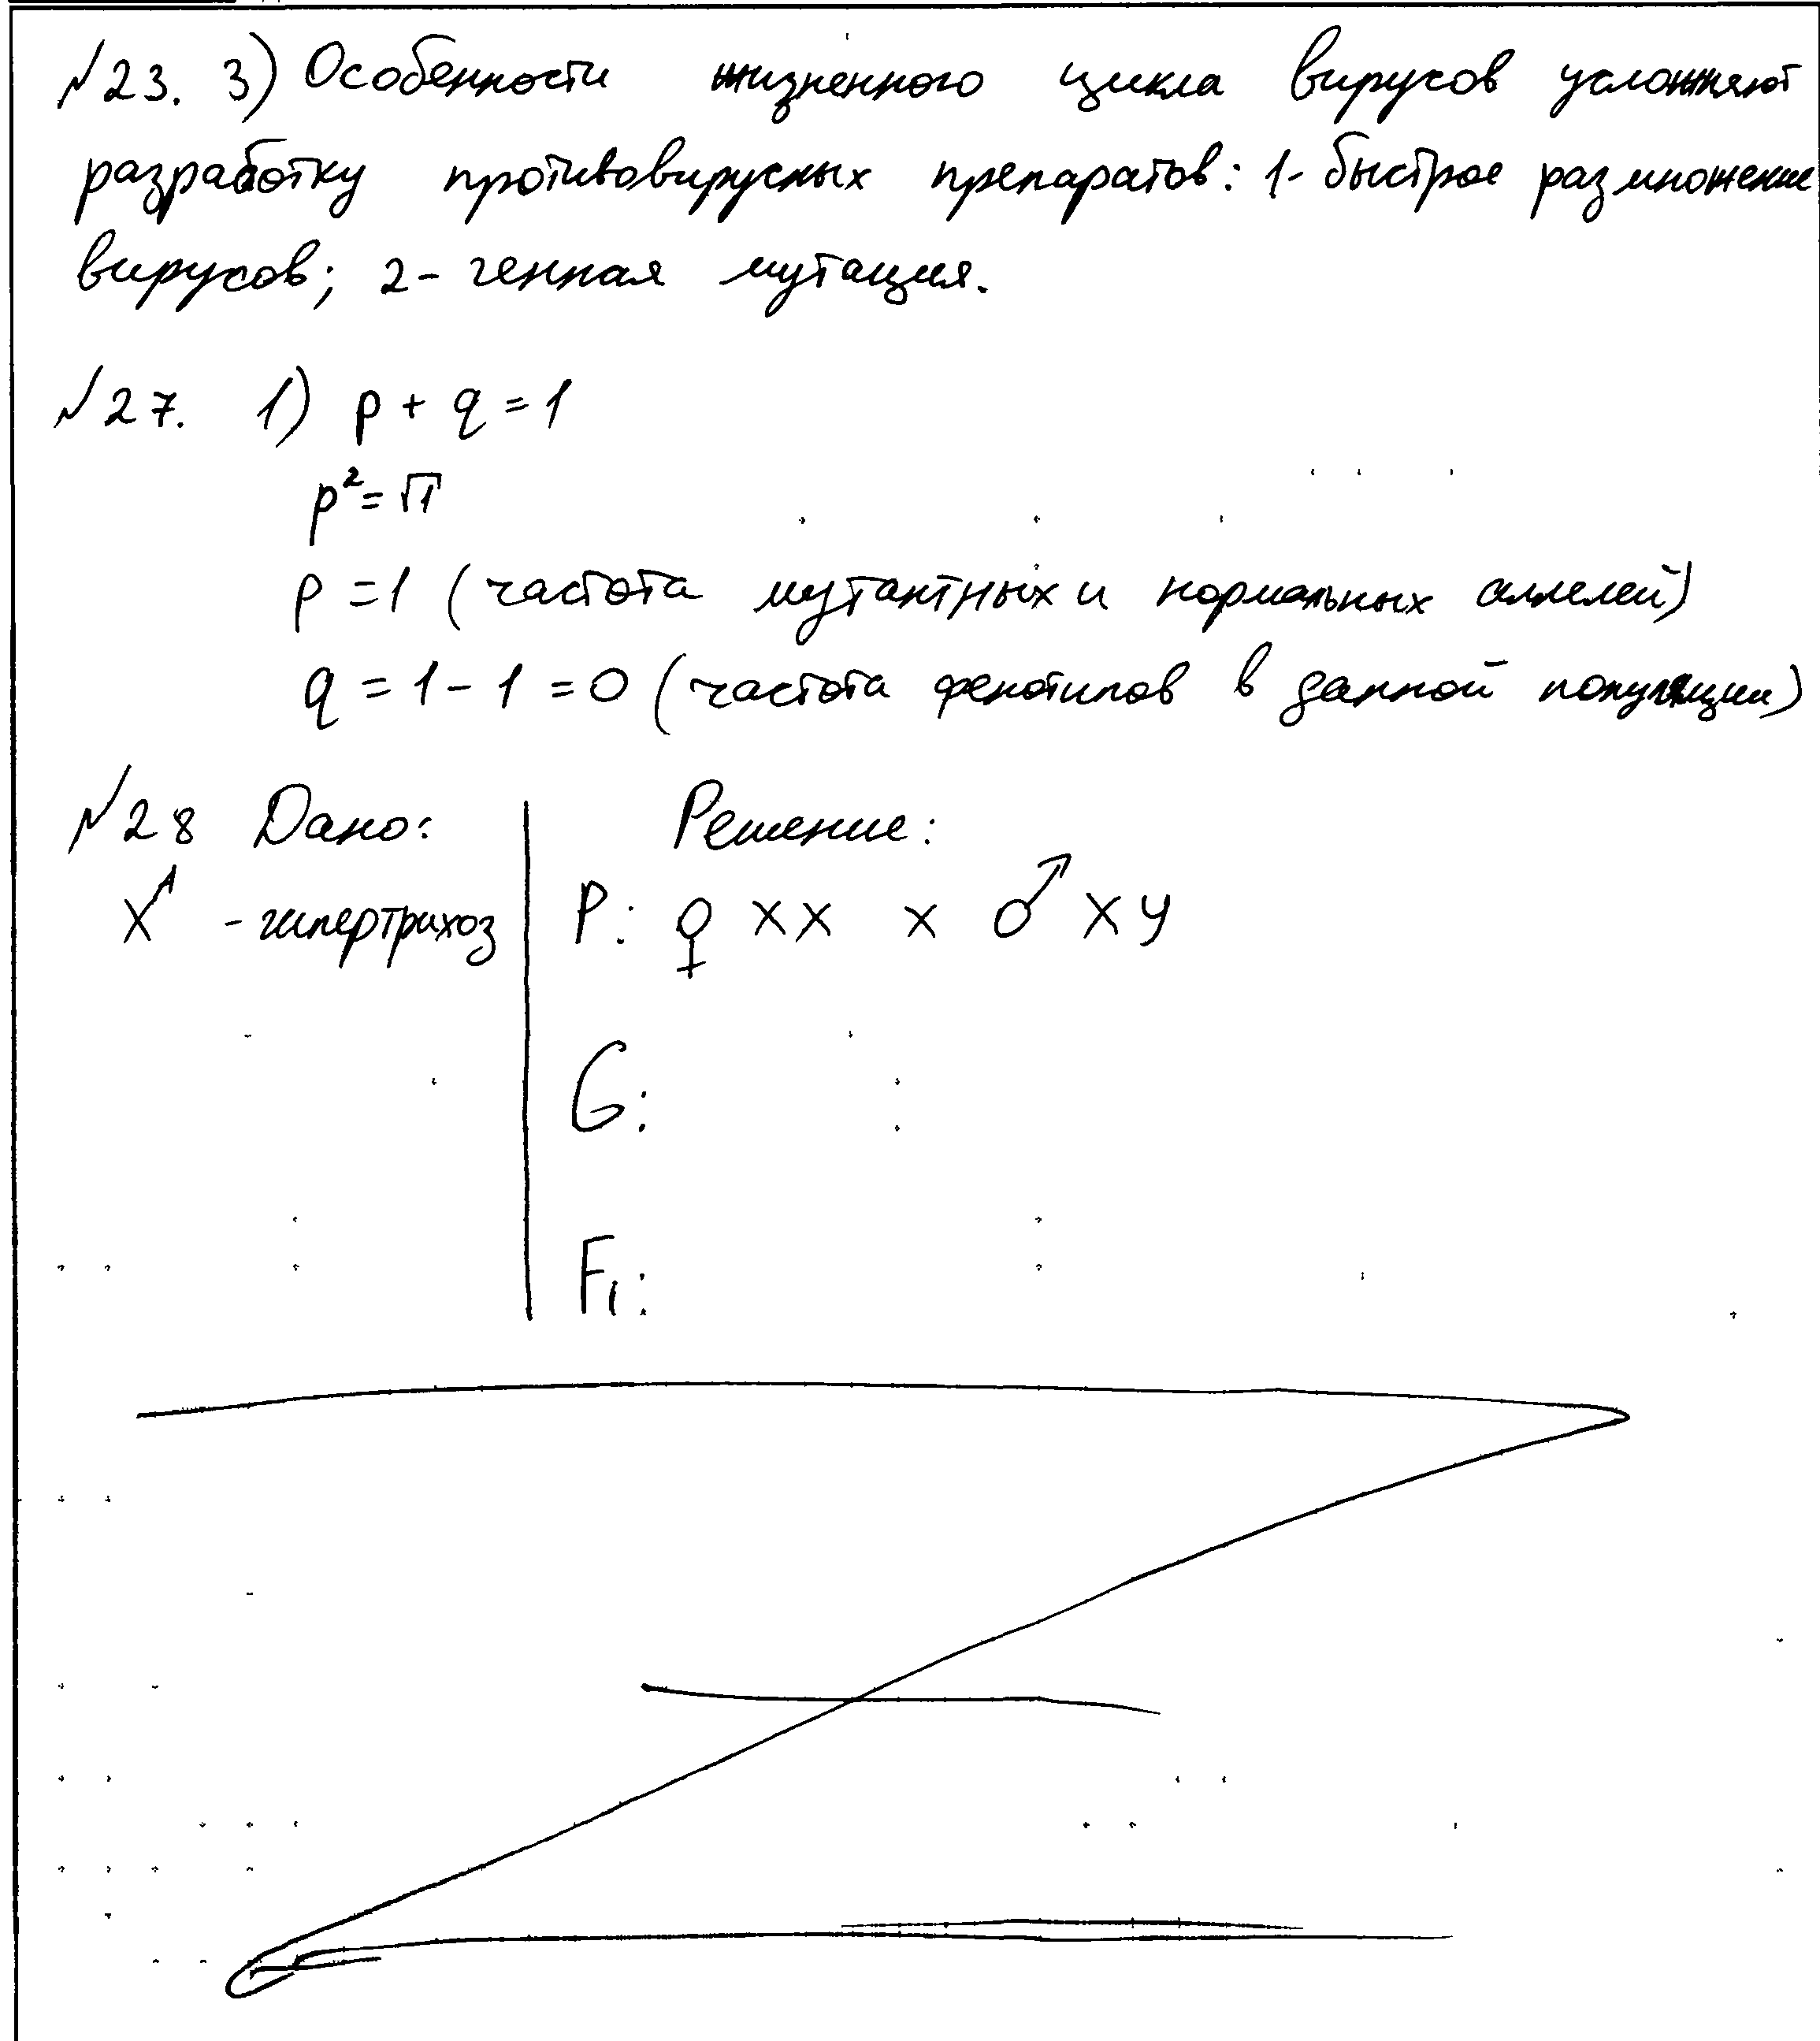 №23. 3) Особенности жизненного цикла вирусов усложняют
разработку противовирусных препаратов: 1- быстрое размножение
вирусов; 2- генная мутация.
№27. 1) p + q = 1
p² = √1
p = 1 (частота мутантных и нормальных аллелей)
q = 1 - 1 = 0 (частота фенотипов в данной популяции)
№28 Дано: Решение:
Xᴬ - гипертрихоз P: ♀ XX x ♂ XY
G:
F₁: